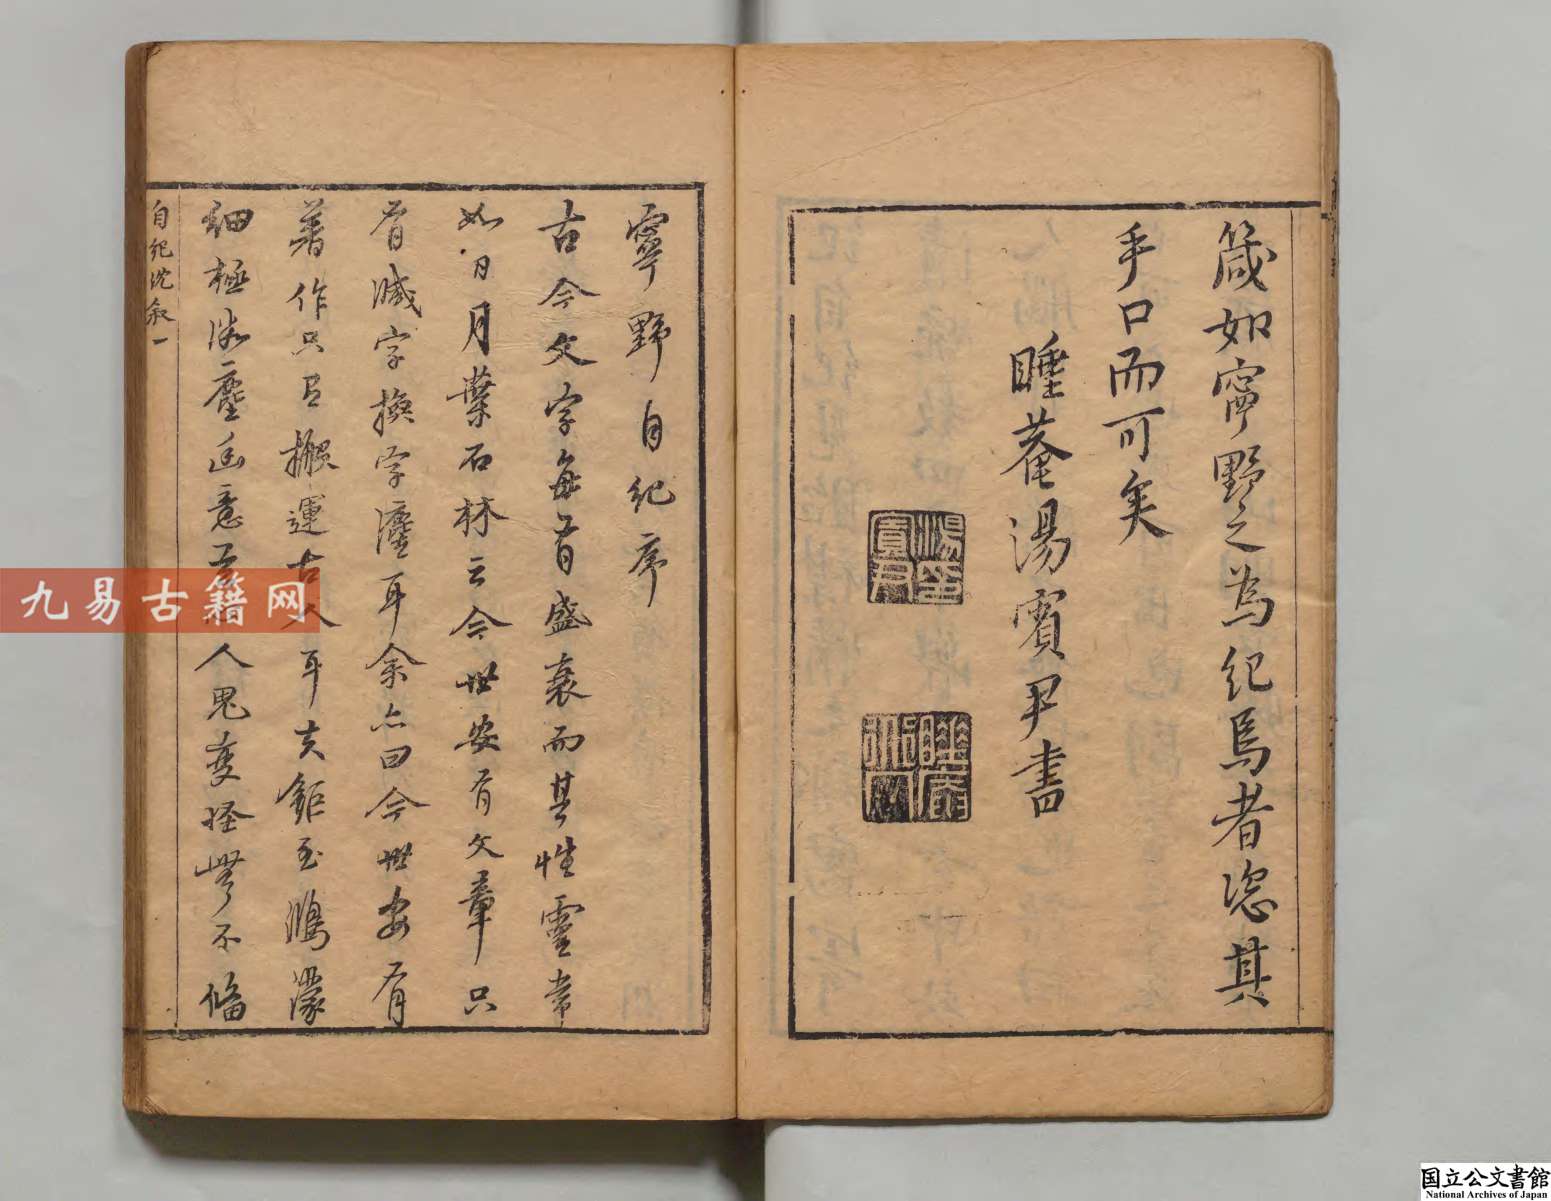 箴如寧野之為紀焉者恣其
手口而可矣
睡菴湯賓尹書
湯賓尹印
睡庵
寧野自紀序
古今文字每有盛衰而其性靈常
如日月葉石林云今世安有文章只
有減字換字法耳余亦曰今世安有
著作只有搬運古人耳夫鉅至鴻濛
細極微塵幽意五人鬼變怪無不偹
自紀沈叙一
九易古籍网
国立公文書館
National Archives of Japan